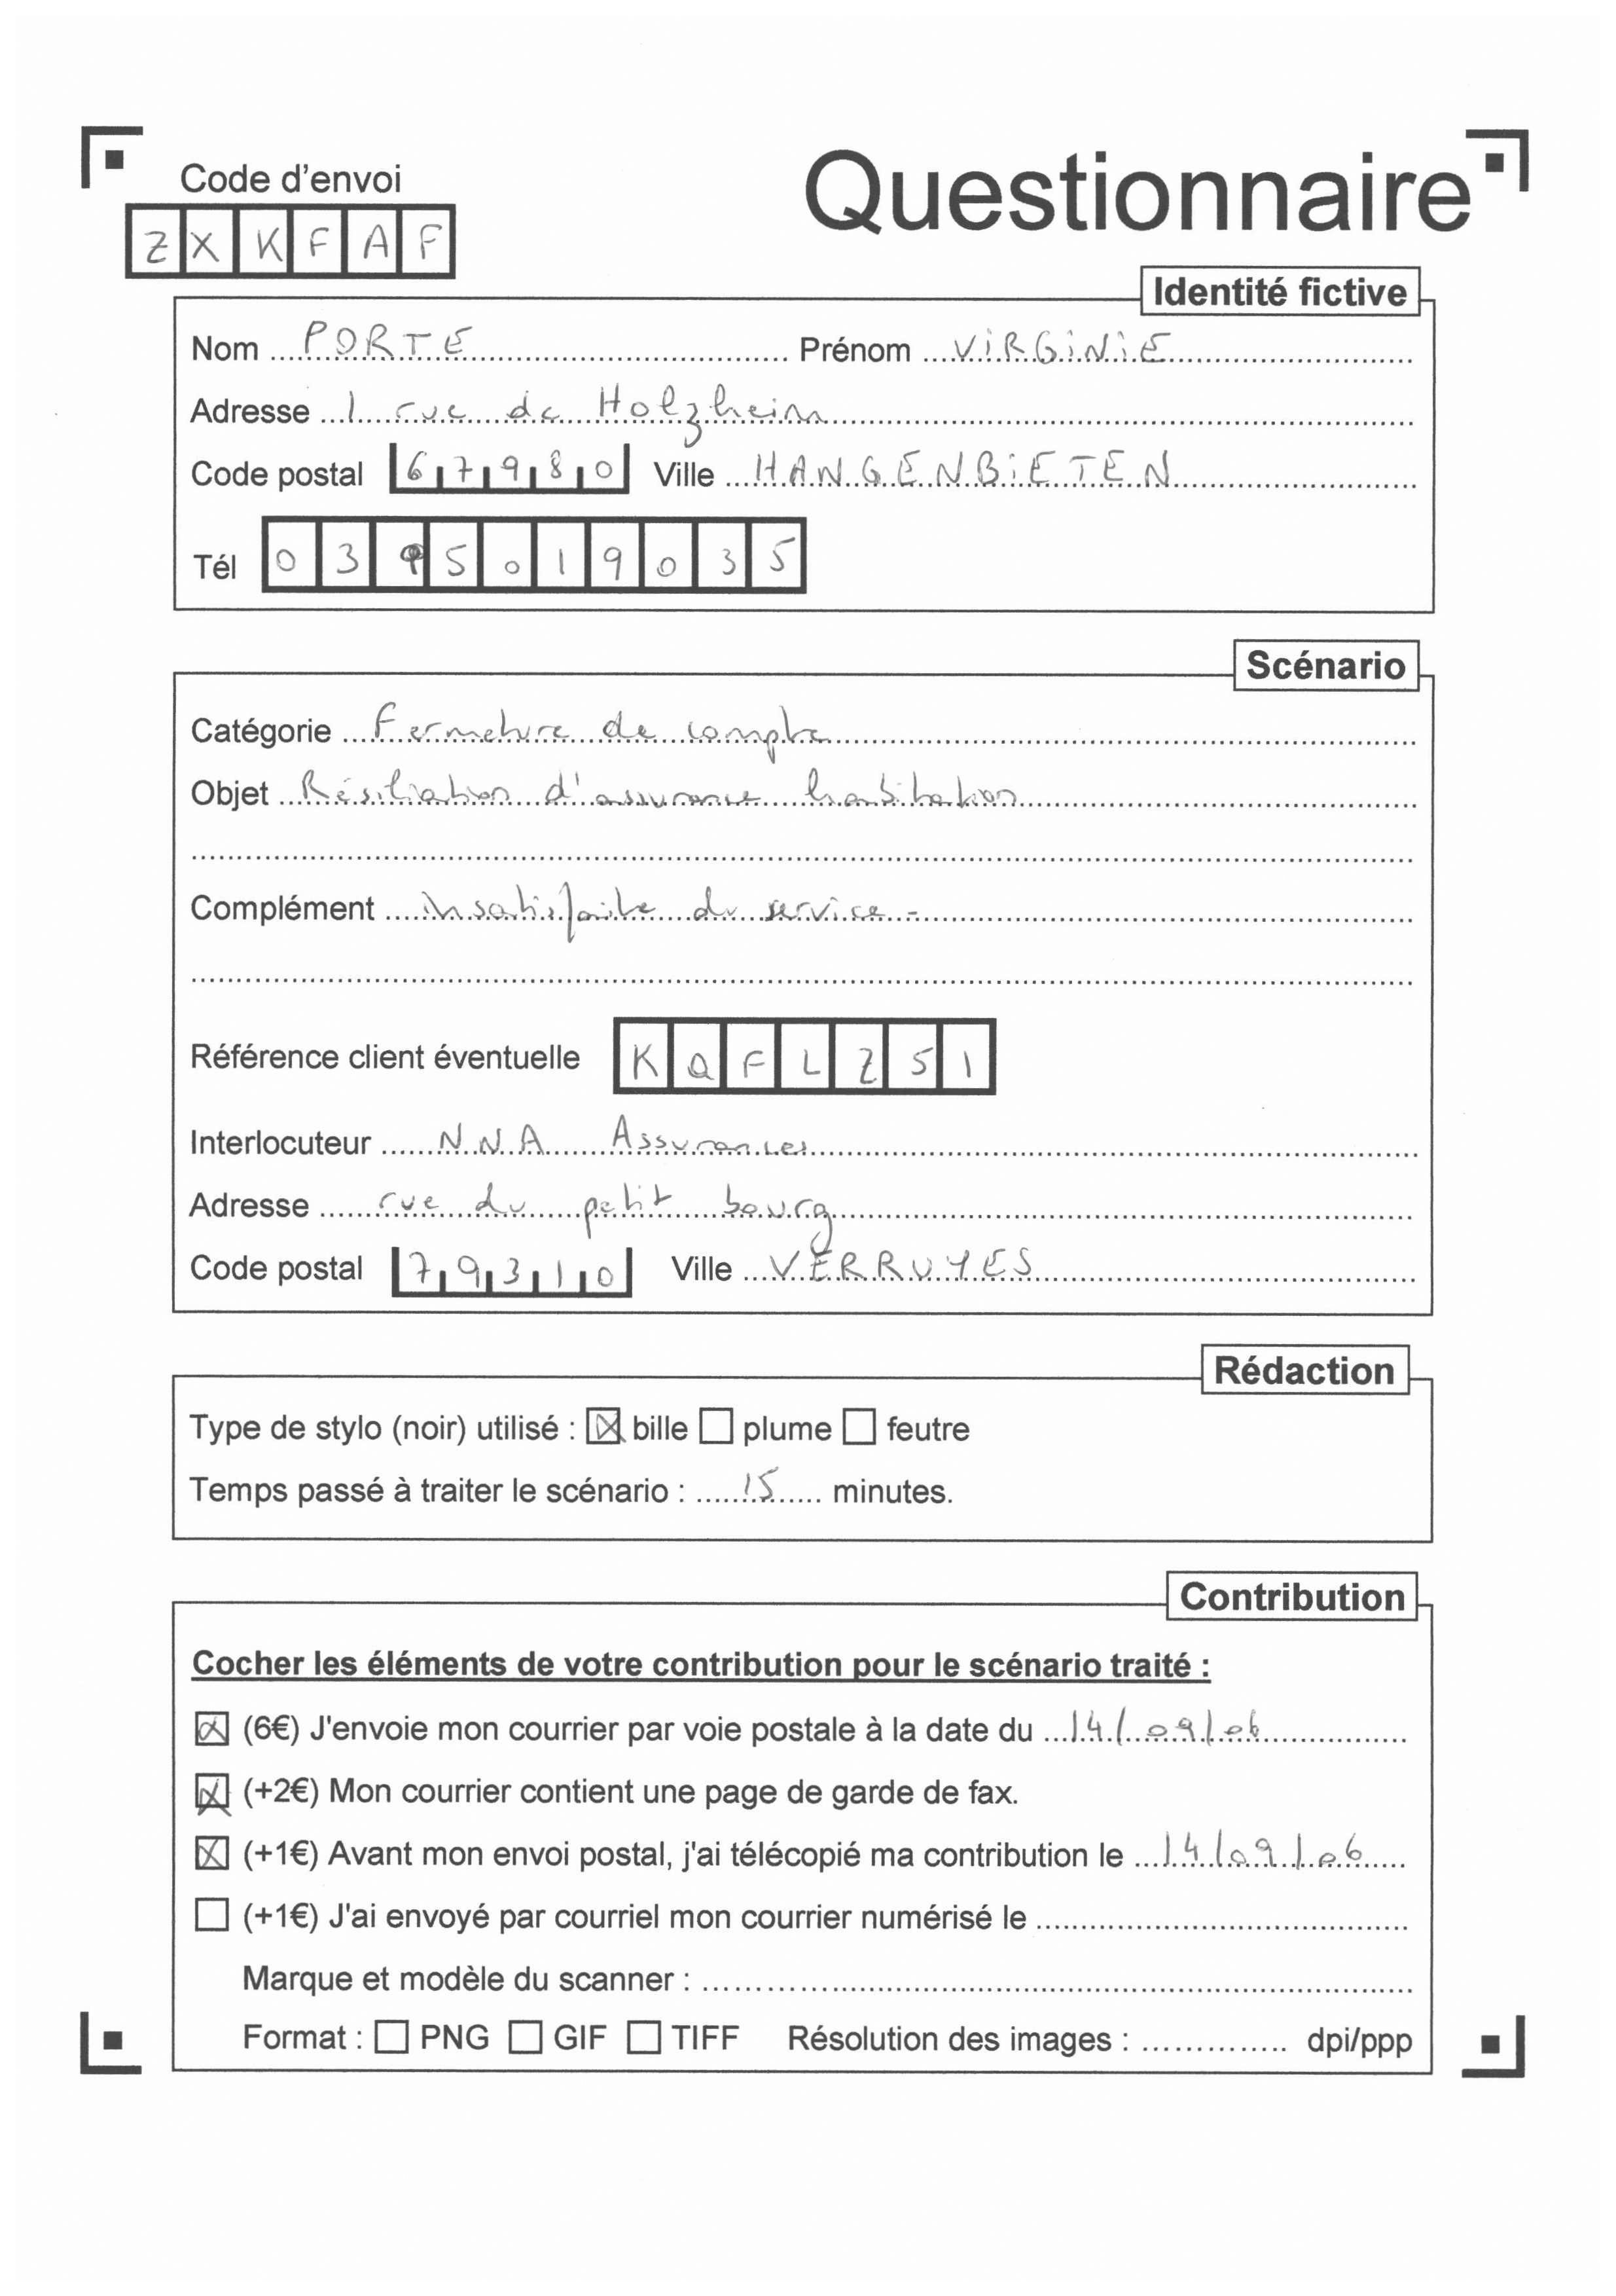 Code d'envoi
Questionnaire
Z X K F A F
Identité fictive
Nom PORTE Prénom ViRGiNiE
Adresse 1 rue de Holzheim
Code postal 67980 Ville HANGENBiETEN
Tél 03 5019035
Scénario
Catégorie Fermeture de compte
Objet Résiliation d'assurance habitation
Complément insatisfaite du service -
Référence client éventuelle K Q F L Z 5 1
Interlocuteur NNA Assurances
Adresse rue du petit bourg
Code postal 79310 Ville VERRUYES
Rédaction
Type de stylo (noir) utilisé : ☒ bille ☐ plume ☐ feutre
Temps passé à traiter le scénario : 15 minutes.
Contribution
Cocher les éléments de votre contribution pour le scénario traité :
☒ (6€) J'envoie mon courrier par voie postale à la date du 14/09/06
☒ (+2€) Mon courrier contient une page de garde de fax.
☒ (+1€) Avant mon envoi postal, j'ai télécopié ma contribution le 14/09/06
☐ (+1€) J'ai envoyé par courriel mon courrier numérisé le
Marque et modèle du scanner :
Format : ☐ PNG ☐ GIF ☐ TIFF Résolution des images : dpi/ppp